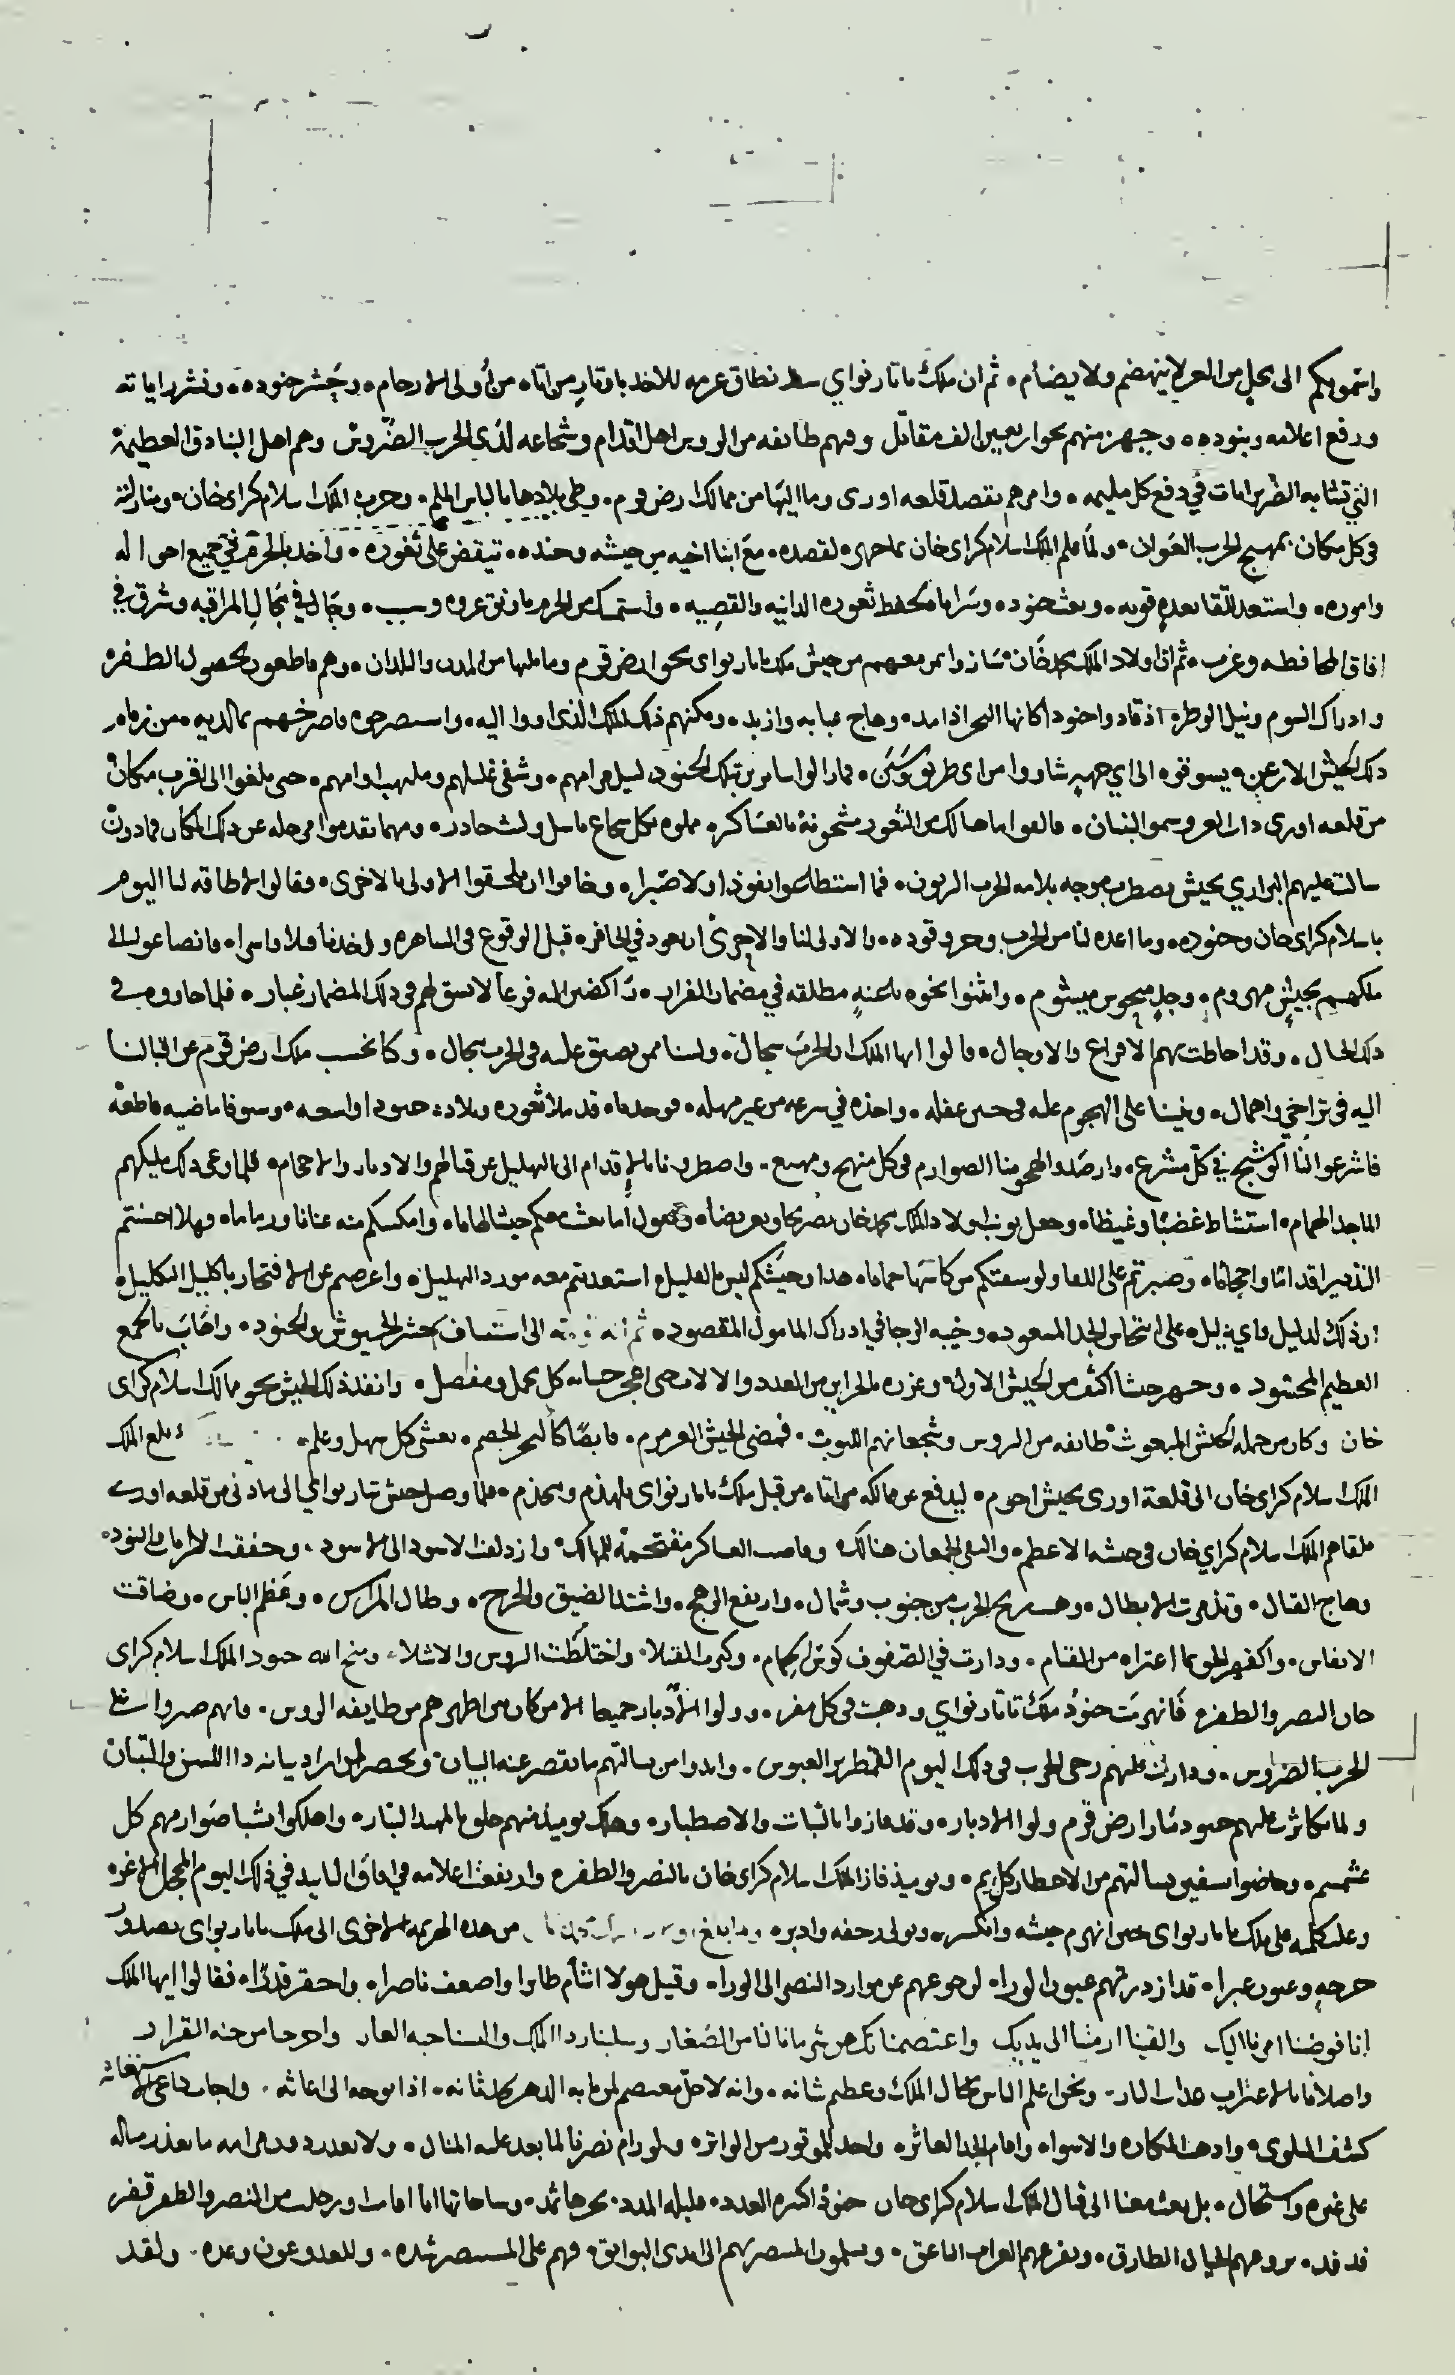 واسموبكم الى محل من العز لا ينهضم ولا يضام ثم ان ملك تاتار نواي نطاق عزمه للاخذ باوتار من اتاه من أولى الارحام وحشر جنوده ونشر راياته
ورفع اعلامه وبنوده وجهز منهم نحو اربعين الف مقاتل وفيهم طائفه من الروس اهل اقدام وشجاعه لذى الحرب الضروس وهم اهل البنادق العظيمة
التي في دفع كل مليمه وامرهم بقصد قلعه اورى وما اليها من ممالك ارض قرم وطى بلادها بالباس الملم وحرب الملك اسلام كراى خان ومنازلته
في كل مكان بمهيج الحرب العوان ولما علم الملك اسلام كراى خان لقصده مع ابنا اخيه من جيشه وجنده تيقض على ثغوره واخذ بالحزم في جميع احواله
واموره واستعد للقا بعده قويه وبعث جنوده وسرايا تحفظ ثغوره الدانيه والقصيه واستمسك من الحزم باوثق عروه وسبب وجال في مجال المراقبه وشرق في
افاق المحافظه وغرب ثم ان اولاد الملك محمد خان ساروا بمن معهم من جيش ملك تاتار نواى نحو ارض قرم وما يليها من المدن والبلدان وهم قاطعون بحصول الظفر
وادراك السوم ونيل الوطر اذ قادوا جنودا كانها البحر اذا مد وهاج عبابه وازبد ومكنهم ذلك الملك الذى اووا اليه واستصرخوه فاصرخهم بما لديه من زمام
ذلك الجيش الارعن يسوقوه الى اي جهه شاووا من اى طريق وسنن فما زالوا سايرين بتلك الجنود لنيل مرامهم وشفى غليلهم اوامهم حتى بلغوا الى اقرب مكان
من قلعه اورى ذات العز وسمو البنيان فالفوا ما هنالك من الثغور مشحونة بالعساكر مملوه بكل شجاع باسل وليث خادر ومهما تقدموا مرحله عن ذلك المكان فما دون
سالت عليهم البرارى بجيش يضطرب موجه بلامه الحرب الزبون فما استطاعوا نفوذا ولا صبرا وخافوا ان يلحقوا الاولى بالاخرى وقالوا لا طاقه لنا اليوم
باسلام كراى خان وجنوده وما اعده لنا من الحرب وقوده والاولى لنا والاحرى ان نعود في الحافره قبل الوقوع في الساهره واخذنا قتلا واسرا فانصاعوا الى
ملكهم بجيش مهزوم وجد منحوس ميشوم وانثنوا نحوه باعنه مطلقه في مضمار الفرار راكضين فزعا لا يشق لهم في ذلك المضمار غبار فلما حاروه في
ذلك الحال وقد احاطت بهم الافزاع والاوجال قالوا ايها الملك ان الحرب سجال ولسنا ممن يضيق عليه في الحرب مجال وكنا نحسب ملك ارض قرم عن اقبالنا
اليه في تراخي واهمال وبنينا على الهجوم عليه في حين غفله واخذه في سرعه من غير مهله فوجدناه قد ملا ثغوره وبلاده جنودا واسعه وسيوفا ماضيه قاطعة
فاشرعوا لنا الوشيج في كل مشرع وارصدوا لهجومنا الصوارم في كل منهج ومهيع واضطرونا بالاقدام الى التهليل عن قتالهم والادبار والاحجام فلما وعى ذلك مليكهم
الماجد الهمام استشاط غضبا وغيظا وجعل يونب اولاد الملك محمد خان تصريحا وتعريضا ويقول اما بعثت معكم جيشا لهاما وامكنتكم منه عنانا وزماما وهلا احسنتم
التدبير اقداما واحجاما وصبرتم على اللقا ولو سقتكم من كاسها حماما هذا وجيشكم ليس بالقليل استعذبتم معه مورد التهليل واعرضتم عن الافتخار باكليل التكليل
ان ذلك لدليل واي دليل على انتحاس الجد المسعود وخيبه الرجا في ادراك المامول المقصود ثم انه الى استيناف حشر الجيوش والجنود واهاب بالجمع
العظيم المحشود وجهز جيشا اكثف من الجيش الاول وعززه بالجم من العدد والالات حتى اعجز حسابه كل مجمل ومفصل وانفذ ذلك الجيش نحو ممالك اسلام كراى
خان وكان من جمله الجيش المبعوث طائفه من الروس وشجعانهم الليوث فمضى الجيش العرمرم فايضا كالبحر الخضم يغشى كل سهل وعلم وبلغ الملك
الملك اسلام كراى خان الى قلعة اورى بجيش احوم ليدفع عن ممالكه من اتاه من قبل ملك تاتار نواى بلهذم ومخذم فلما وصل جيش تتار نواي الى ما دنى من قلعه اورى
تلقاهم الملك اسلام كراي خان في جيشه الاعظم والتقى الجمعان هنالك وغاصت العساكر مقتحمة للمهالك وازدلفت الاسود الى الاسود وخفقت الرايات والبنود
وهاج القتال وتذمرت الابطال وهبت ريح الحرب من جنوب وشمال وارتفع الرهج واشتد الضيق والحرج وطال المراس وعظم الباس وضاقت
الانفاس واكفهر الجو مما اعتراه من القتام ودارت في الصفوف كؤس الحمام وكثرت القتلا واختلطت الروس والاشلاء ومنح الله جنود الملك اسلام كراى
خان النصر والظفر فانهزمت جنود ملك تاتار نواي وذهبت في كل مفر وولوا الادبار جميعا الا من كان بين اظهرهم من طايفه الروس فانهم صبروا على
الحرب الضروس ودارت عليهم رحى الحرب في ذلك اليوم القمطرير العبوس وابدوا من بسالتهم ما يقصر عنه البيان ويحصر دون ايراد بيانه ذا اللسن والتبيان
ولما تكاثرت عليهم جنود تتار ارض قرم ولوا الادبار وقد فازوا بالثبات والاصطبار وهلك يوميذ منهم خلق بالمهند البتار واهلكوا بشبا صوارمهم كل
غشمشم وخاضوا بسفين بسالتهم من الاخطار كل يم ويوميذ فاز الملك اسلام كراى خان بالنصر والظفر وارتفعت اعلامه في افاق التاييد في ذلك اليوم المحجل الاغر
وعلت كلمته على ملك تاتار نواى حين انهزم جيشه وانكسر وتولى زحفه وادبر ولما بلغ من هذه الهزيمه الاخرى الى ملك تاتار نواى بصدور
حرجه وعيون عبرا قد ازدرتهم عيون الورا لرجوعهم عن موارد النصر الى الورا وقيل هولا اشأم طايرا واضعف ناصرا واحقر قدرا فقالوا ايها الملك
انا فوضنا امرنا اليك والقينا ازمتنا الى يديك واعتصمنا بك من شر ما نالنا من الصغار وسلبنا ردا الملك والبسنا حبه العار واخرجنا من جنه القرار
واصلانا بالاغتراب عذاب النار ونحن اعلم الناس بجلال الملك وعظيم شانه وانه لاجل معتصم لمن نابه الدهر بحدثانه اذا توجه الى اغاثه واجاب داعى الاستغاثه
كشف البلوى واذهب المكاره والاسوا واقام الجد العاثر واخذ للموتور من الواتر ولو رام نصرنا لما بعد عليه المنال ولا تعذر دون مرامه ما تعذر مناله
على غيره واستحال بل بعث معنا الى قتال الملك اسلام كراى خان جنودا كثيره العدد قليله المدد وساحاتها اذا اقامت او رحلت من النصر والظفر قفر
فدفد يروعهم الخيال الطارق ويفزعهم الغراب الناعق ويسلمون المستنصر بهم الى ايدى البوائق فهم على المستنصر شده وللعدو عون وعده ولقد